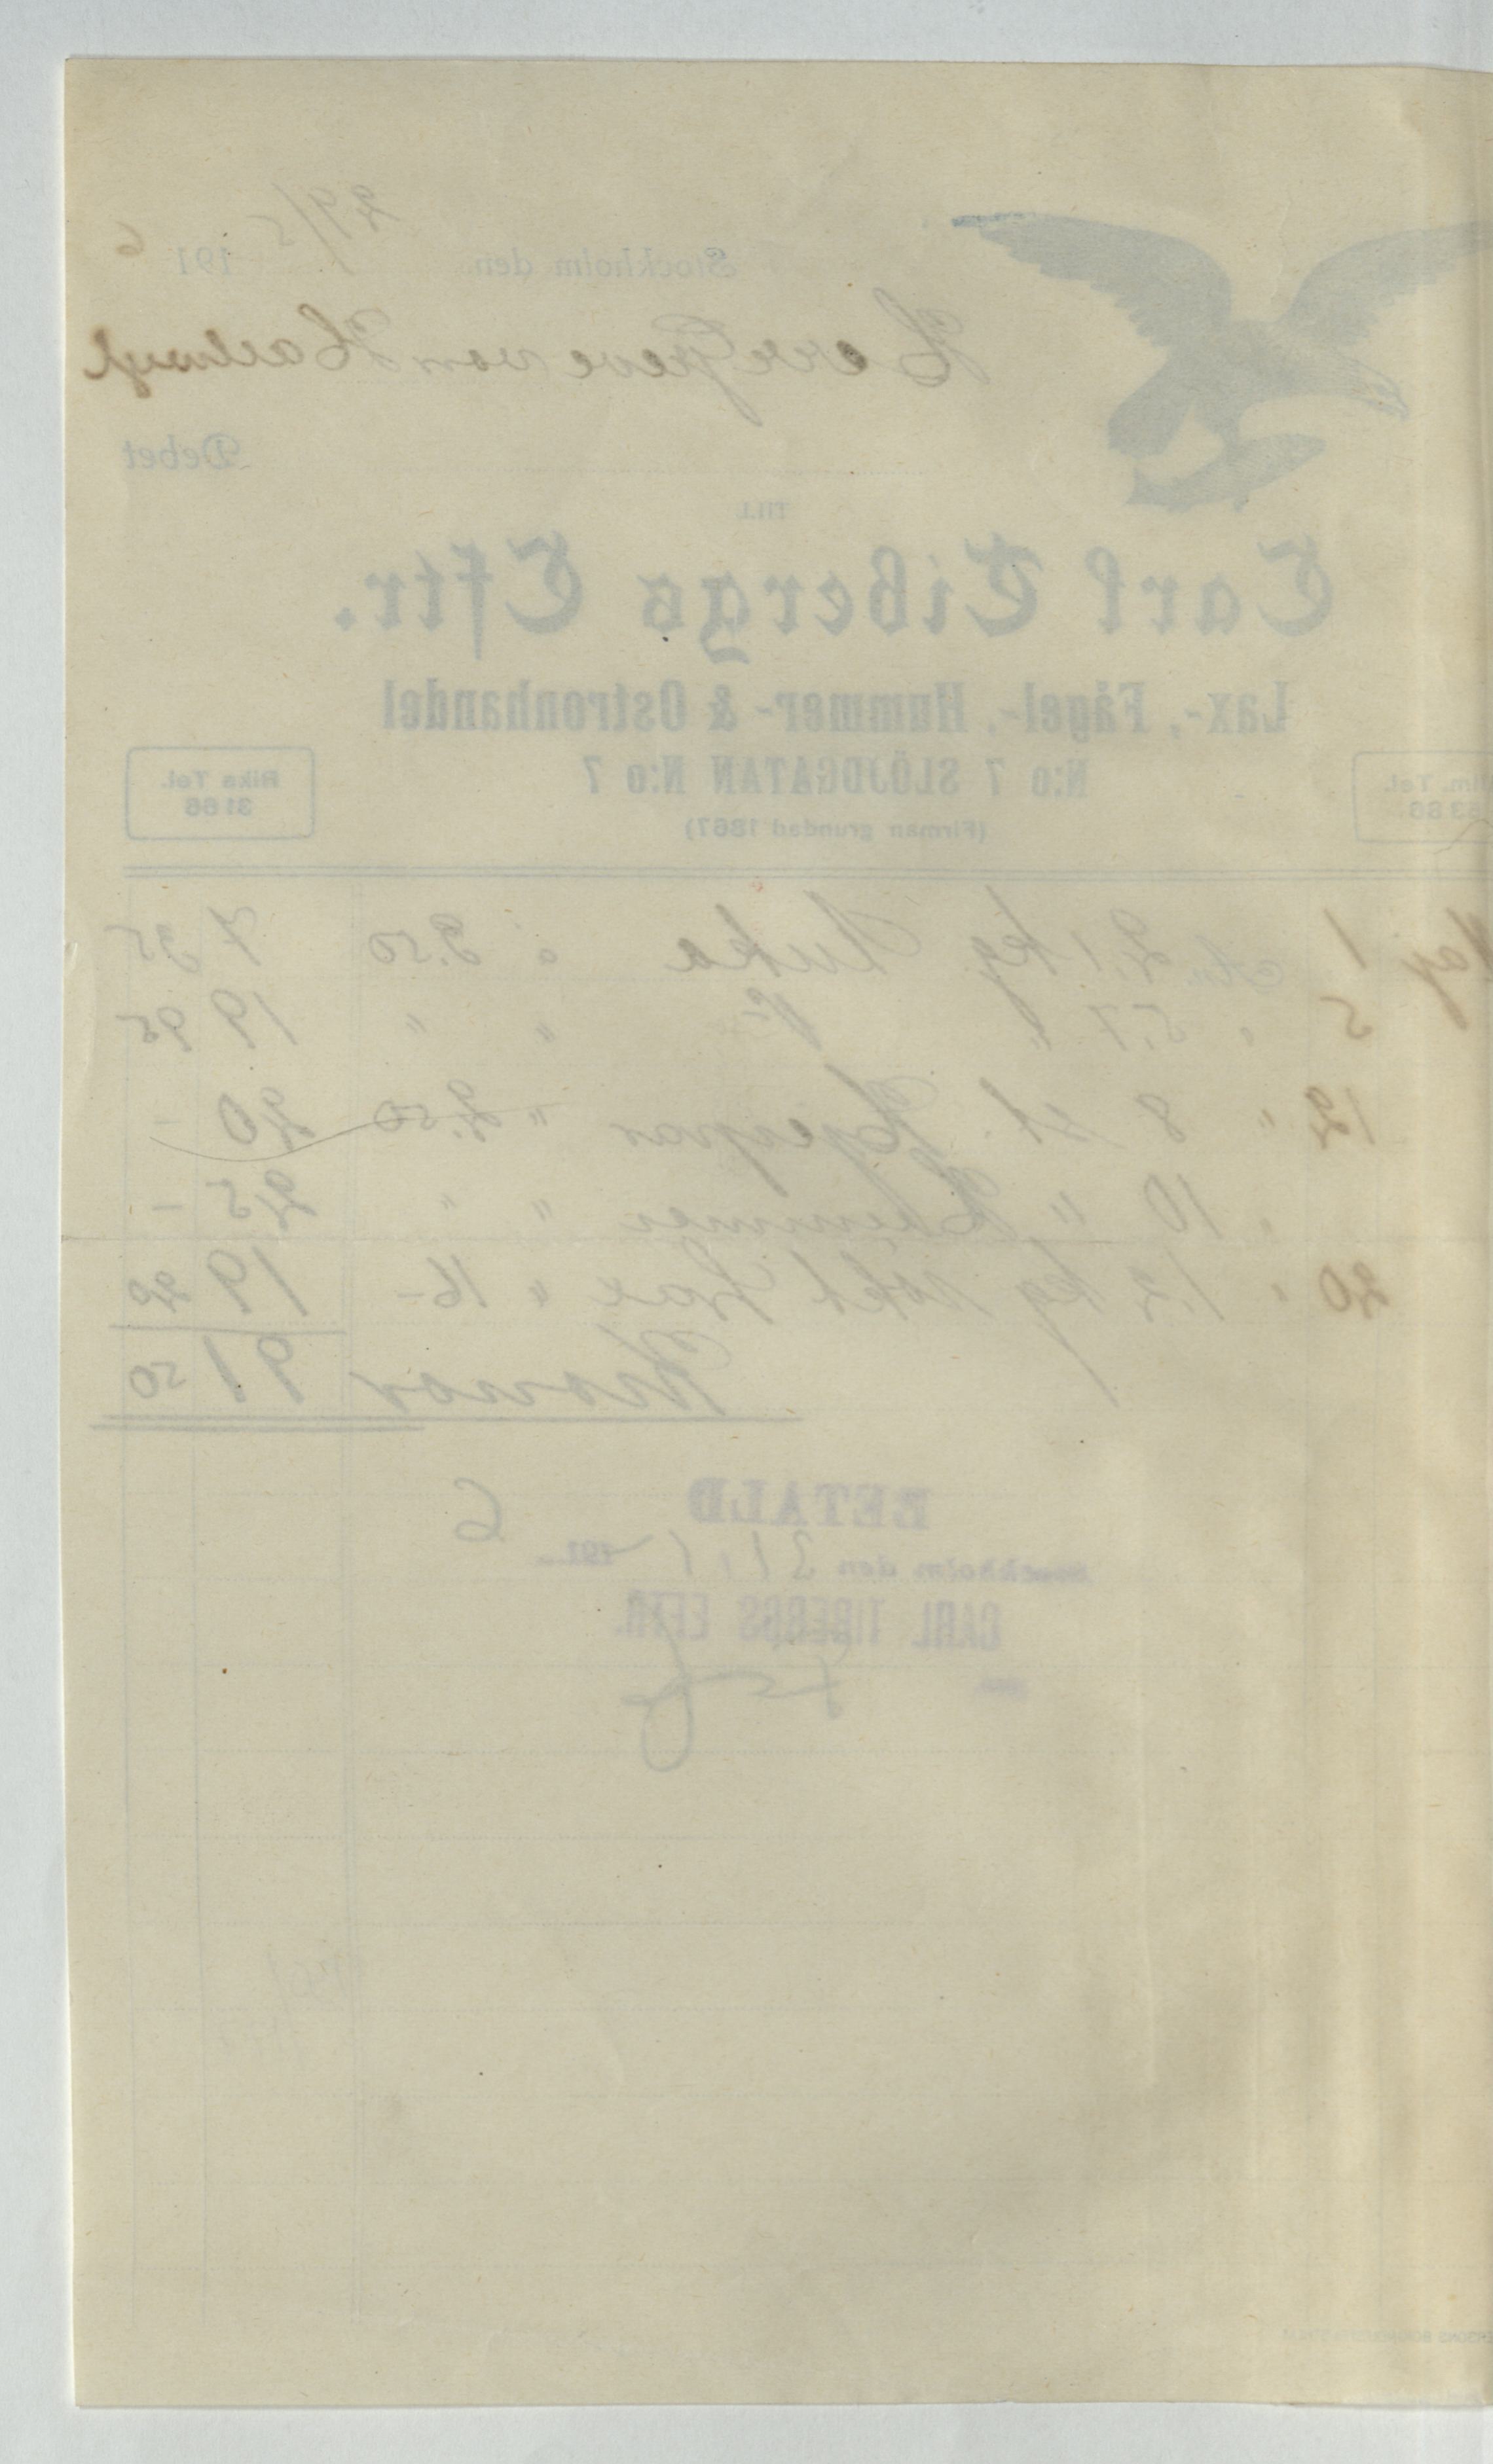 Stockholm den 29/5 1916
Herr Greve von Hallwyl
Debet
TILL
Carl Tibergs Eftr.
Lax-, Fågel-, Hummer- & Ostronhandel
N:o 7 SLÖJDGATAN N:o 7
Riks Tel. 3166
(Firman grundad 1867)
Maj 1 2,1 kg 3.50 7 35
5 " 5,7 " " " 19 95
12 " 8 st. Hjerpar " 2.50 20 -
" 10 " Hummer " " 25 -
20 " 1,2 kg rökt Lax " 16 - 19 20
Kronor 91 50
BETALD
Stockholm den 31/5 1916
CARL TIBERGS EFTR.